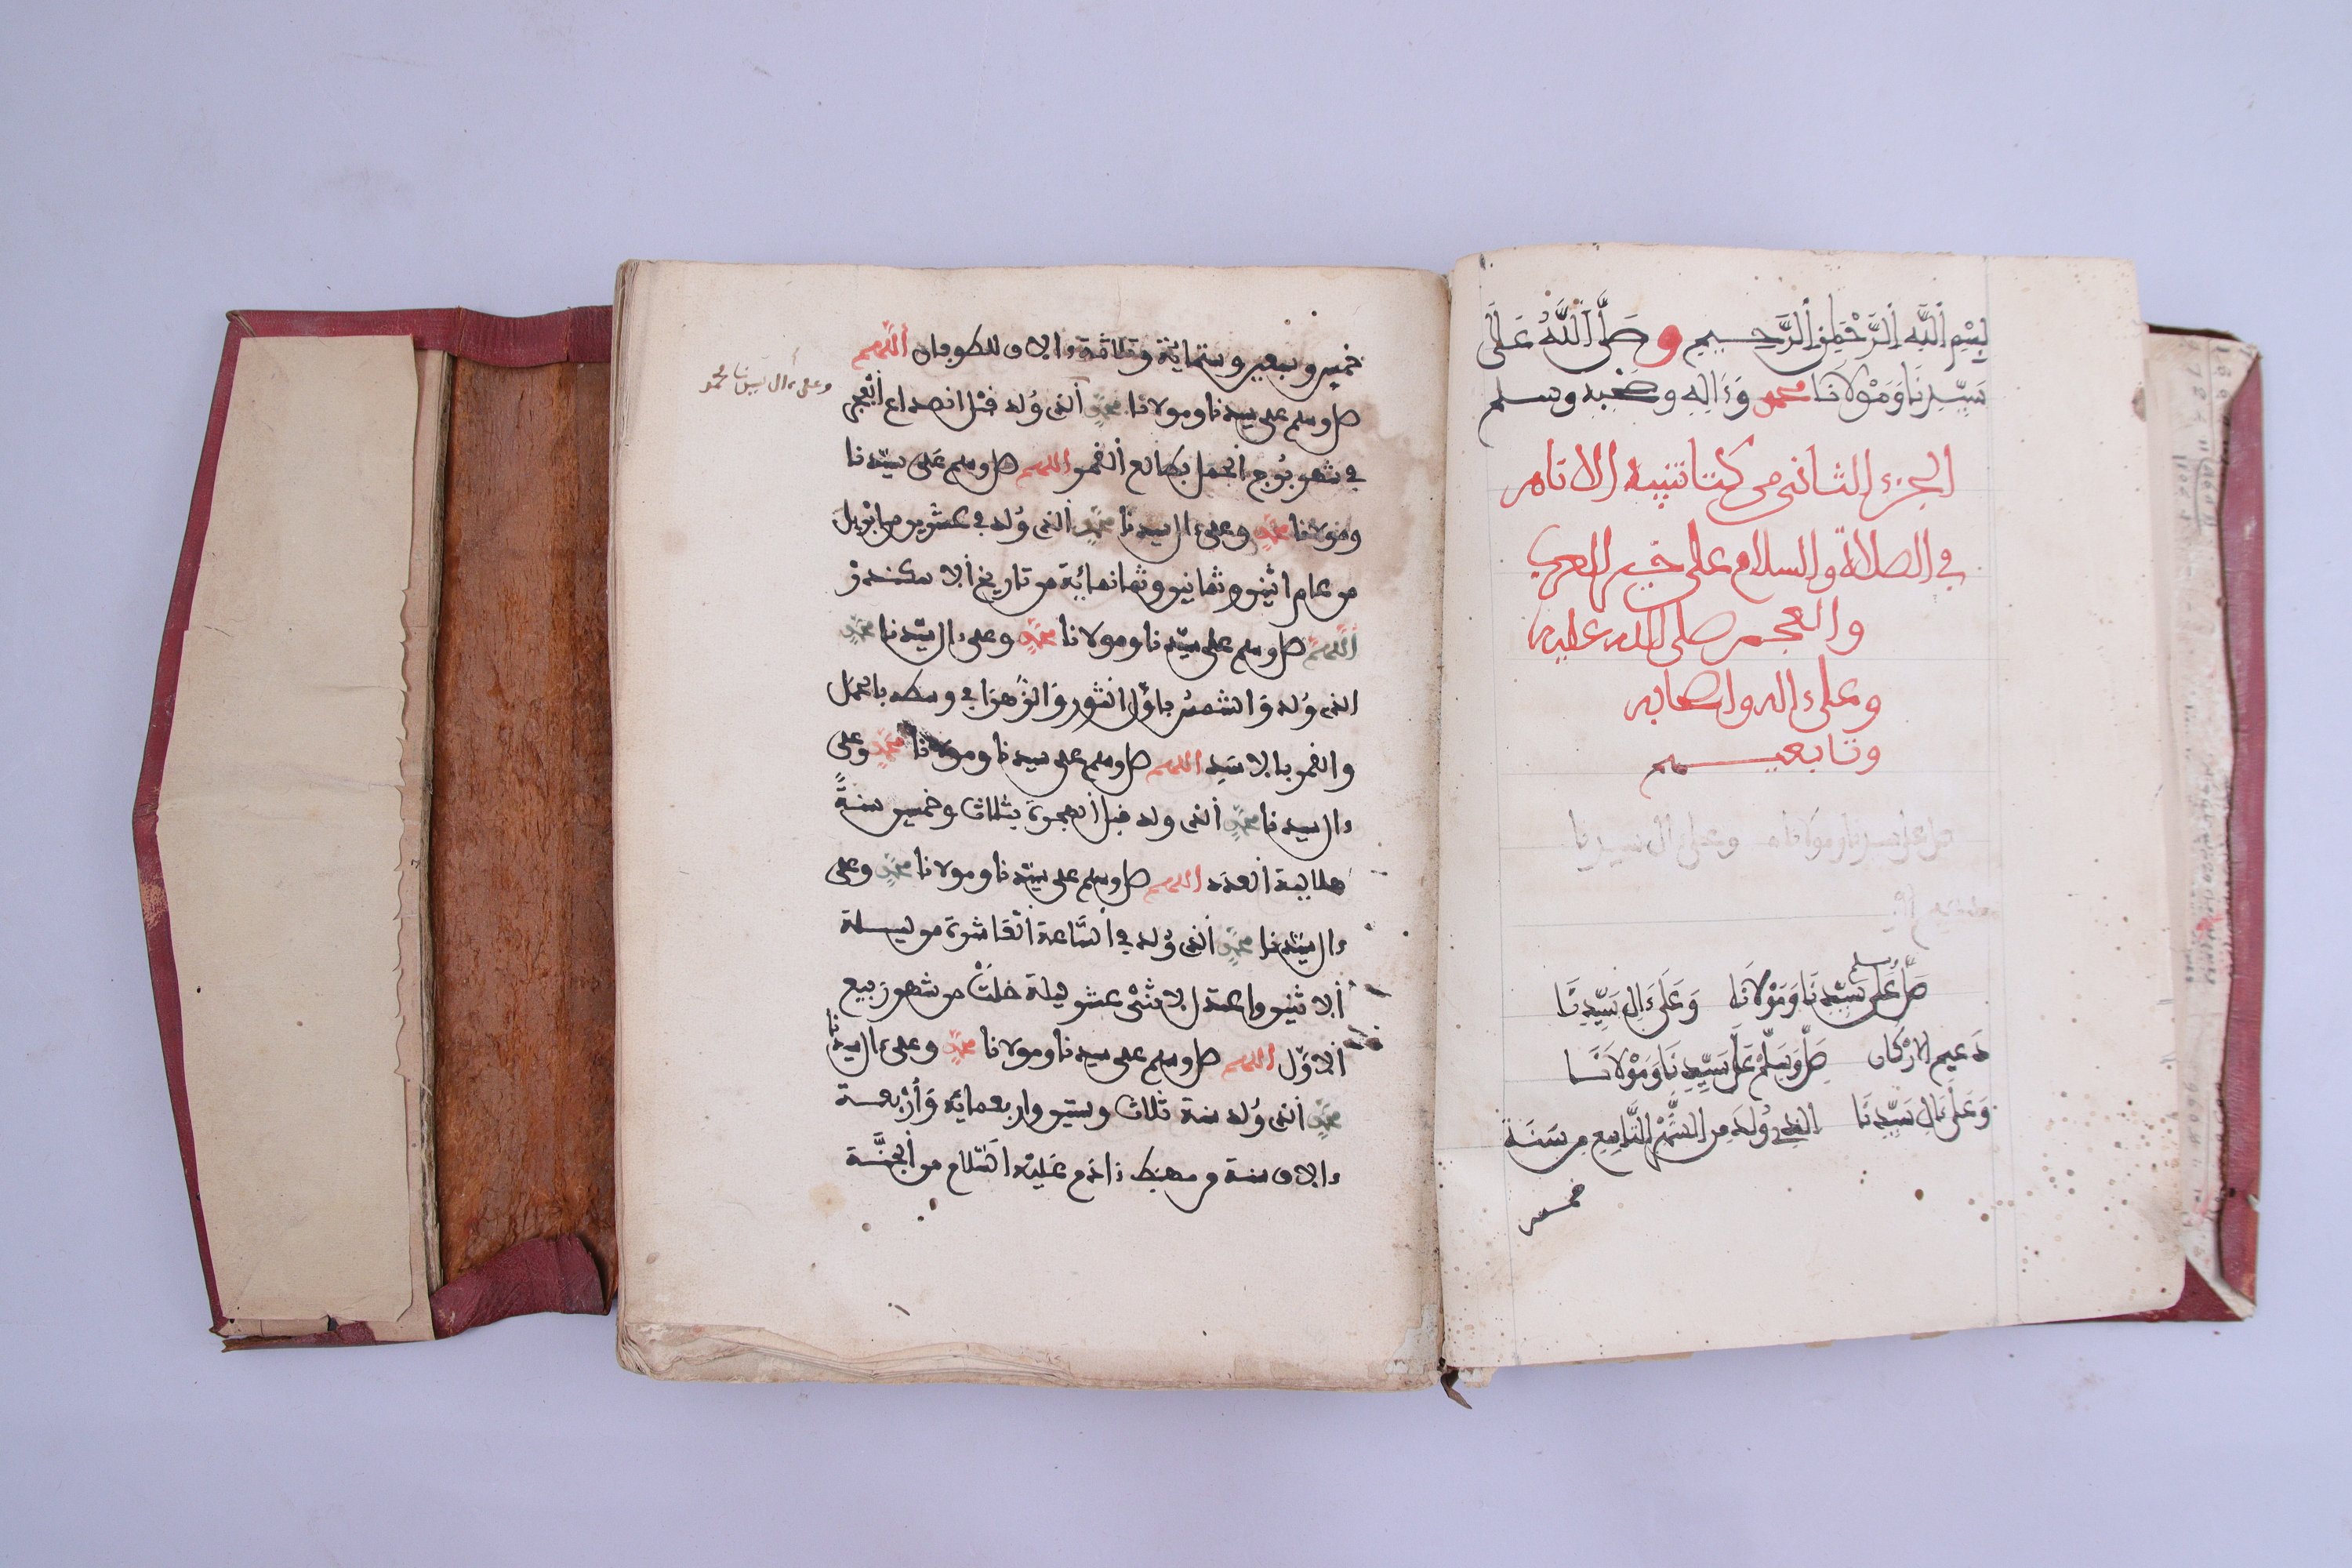 بِسْمِ اللَّهِ الرَّحْمَٰنِ الرَّحِيمِ وصَلَّى اللَّهُ عَلَى
سَيِّدِنَا وَمَوْلَانَا محمد وَءَالِهِ وصَحْبِهِ وسلم
الجزء الثاني من كتاب تنبيه الانام
في الصلاة والسلام على خير العرب
والعجم صلى الله عليه
وعلى ءاله واصحابه
وتابعيهم
صل على سيدنا ومولانا وعلى ءال سيدنا
صَلِّ وسلم عَلَى سَيِّدِنَا وَمَوْلَانَا وَعَلَى ءَالِ سَيِّدِنَا
دعيم الاركان صَلِّ وَسَلِّمْ عَلَى سَيِّدِنَا وَمَوْلَانَا
وَعَلَى ءَالِ سَيِّدِنَا الذي وُلِدَ من الشهر التاسع من سَنَة
خمس
خمس وسبعين وستمائة وثلاثة ءالاف للطوفان اللهم
صل وسلم على سيدنا ومولانا محمد الذي وُلد قبل انصداع الفجر
وعلى ءال سيدنا محمد
في شهر بُرج الحمل بطالع القمر اللهم صل وسلم على سيّدنا
ومولانا محمد وعلى ءال سيدنا محمد الذي وُلد في عشرين من ابريل
من عام اثنين وثمانين وثمانمائة من تاريخ الاسكندر
اللهم صل وسلم على سيّدنا ومولانا محمد وعلى ءال سيّدنا محمد
الذي وُلد وَالشمسُ باوّل الثور وَالزُّهَرَا في وسطه بالحمل
والقمر بالاسَد اللهم صل وسلم على سيدنا ومولانا محمد وعلى
ءال سيدنا محمد الذي ولد قبل الهجرة بثلاث وخمسين سنةً
هلالية العدد اللهم صل وسلم على سيّدنا ومولانا محمد وعلى
ءال سيّدنا محمد الذي وُلد في السَّاعة العَاشرة من ليلة
الاثنين واعتدل لاثنَيْ عشر ليلة خلتْ من شهر ربيع
الاوّل اللهم صل وسلم على سيدنا ومولانا محمد وعلى ءال سيدنا
محمد الذي وُلد سنة ثلاث وستين واربعمائة وَأرْبعة
ءالاف سنة من مهبط ءادم عَليْه السّلام من الجنَّة